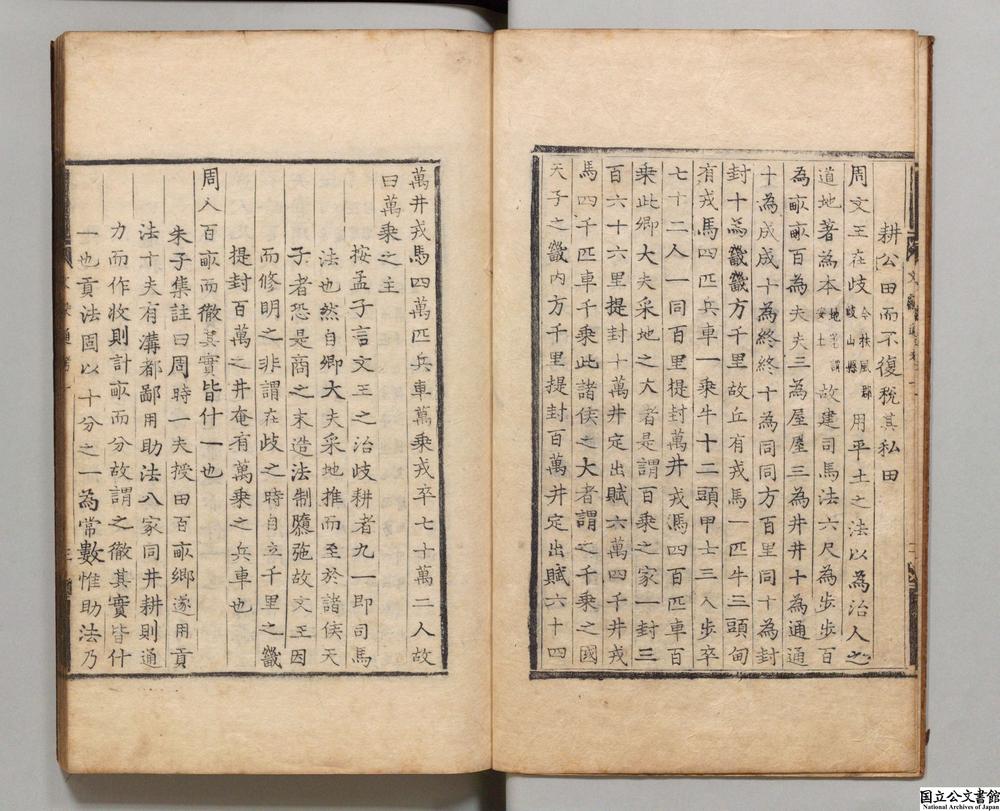 耕公田而不復稅其私田
周文王在歧今扶風郡歧山縣用平土之法以為治人之
道地著為本地著謂安土故建司馬法六尺為步步百
為畝畝百為夫夫三為屋屋三為井井十為通通
十為成成十為終終十為同同方百里同十為封
封十為畿畿方千里故丘有戎馬一匹牛三頭甸
有戎馬四匹兵車一乘牛十二頭甲士三人步卒
七十二人一同百里提封萬井戎馬四百匹車百
乘此卿大夫采地之大者是謂百乘之家一封三
百六十六里提封十萬井定出賦六萬四千井戎
馬四千匹車千乘此諸侯之大者謂之千乘之國
天子之畿内方千里提封百萬井定出賦六十四
萬井戎馬四萬匹兵車萬乘戎卒七十萬二人故
曰萬乘之主
按孟子言文王之治歧耕者九一即司馬
法也然自卿大夫采地推而至於諸侯天
子者恐是商之末造法制隳弛故文王因
而修明之非謂在歧之時自立千里之畿
提封百萬之井奄有萬乘之兵車也
周人百畝而徹其實皆什一也
朱子集註曰周時一夫授田百畝鄉遂用貢
法十夫有溝都鄙用助法八家同井耕則通
力而作收則計畝而分故謂之徹其實皆什
一也貢法固以十分之一為常數惟助法乃
国立公文書館
National Archives of Japan